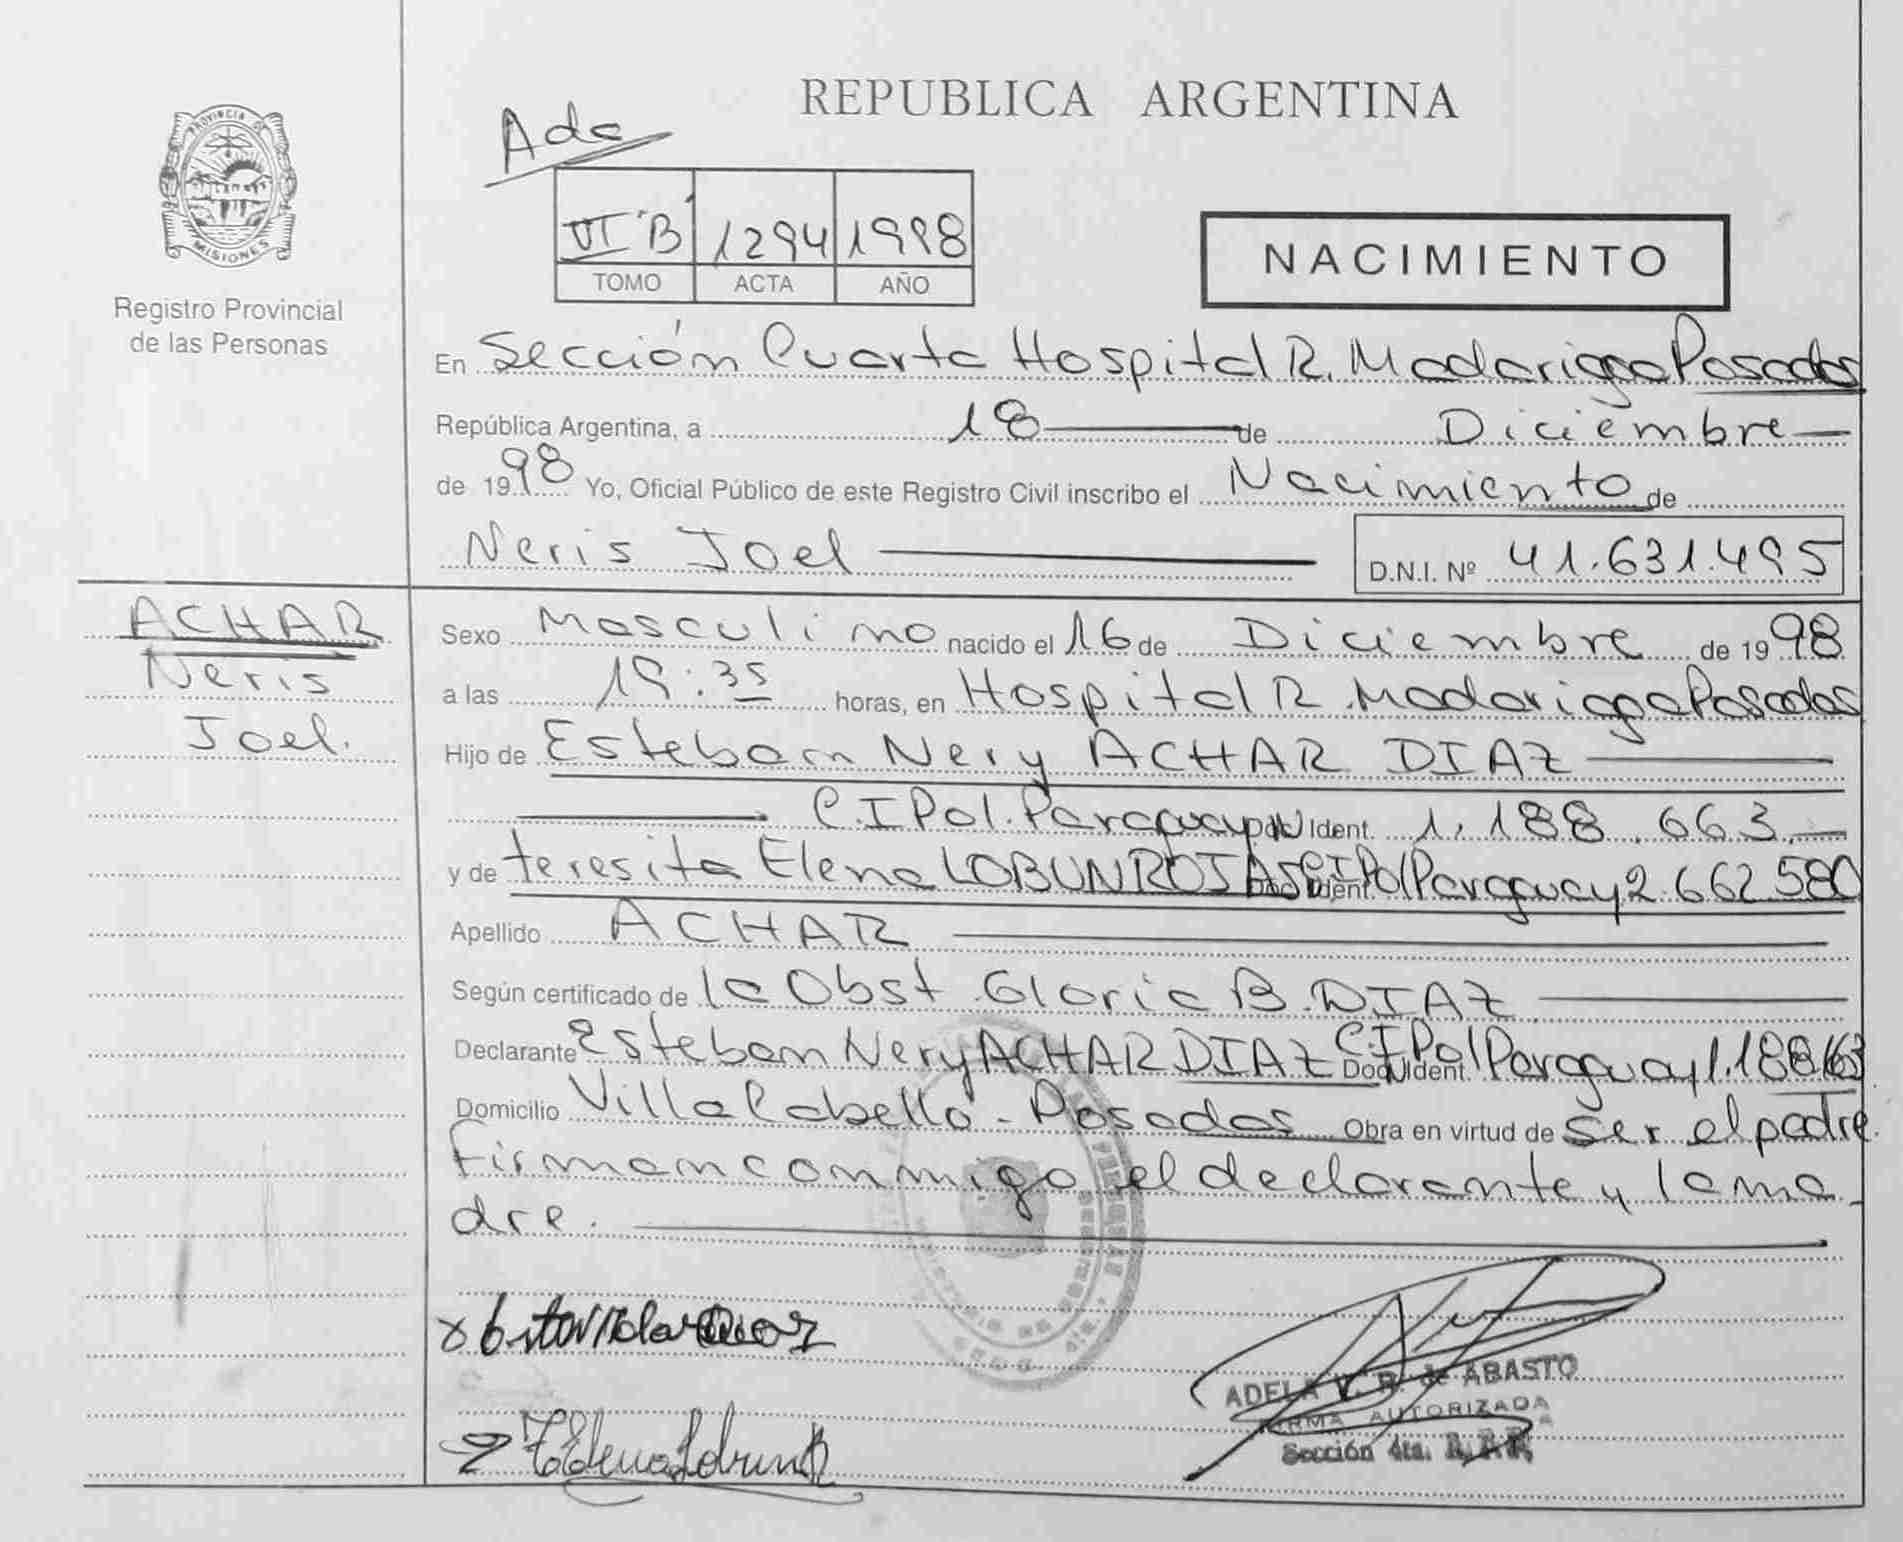 REPUBLICA ARGENTINA
PROVINCIA DE
MISIONES
Registro Provincial
de las Personas
Ada
VI "B" 1294 1998
TOMO ACTA AÑO
NACIMIENTO
En Sección Cuarta Hospital R. Madariaga Posadas
República Argentina, a 18 de Diciembre
de 1998 Yo, Oficial Público de este Registro Civil inscribo el Nacimiento de
Neris Joel D.N.I. Nº 41.631.495
ACHAR
Neris
Joel.
Sexo Masculino nacido el 16 de Diciembre de 1998
a las 19:35 horas, en Hospital R. Madariaga Posadas
Hijo de Esteban Nery ACHAR DIAZ
C.I Pol. Paraguay Nº Ident. 1.188.663
y de teresita Elena LOBUN ROJAS C.I Pol Paraguay 2.662.580
Apellido ACHAR
Según certificado de la Obst Gloria B. DIAZ
Declarante Esteban Nery ACHAR DIAZ C.I Pol Doc. Ident. Paraguay 1.188.663
Domicilio Villa Cabello - Posadas Obra en virtud de ser el padre.
Firman conmigo el declarante y la ma_
dre.
ADELA V. R. de ABASTO
FIRMA AUTORIZADA
Sección 4ta.